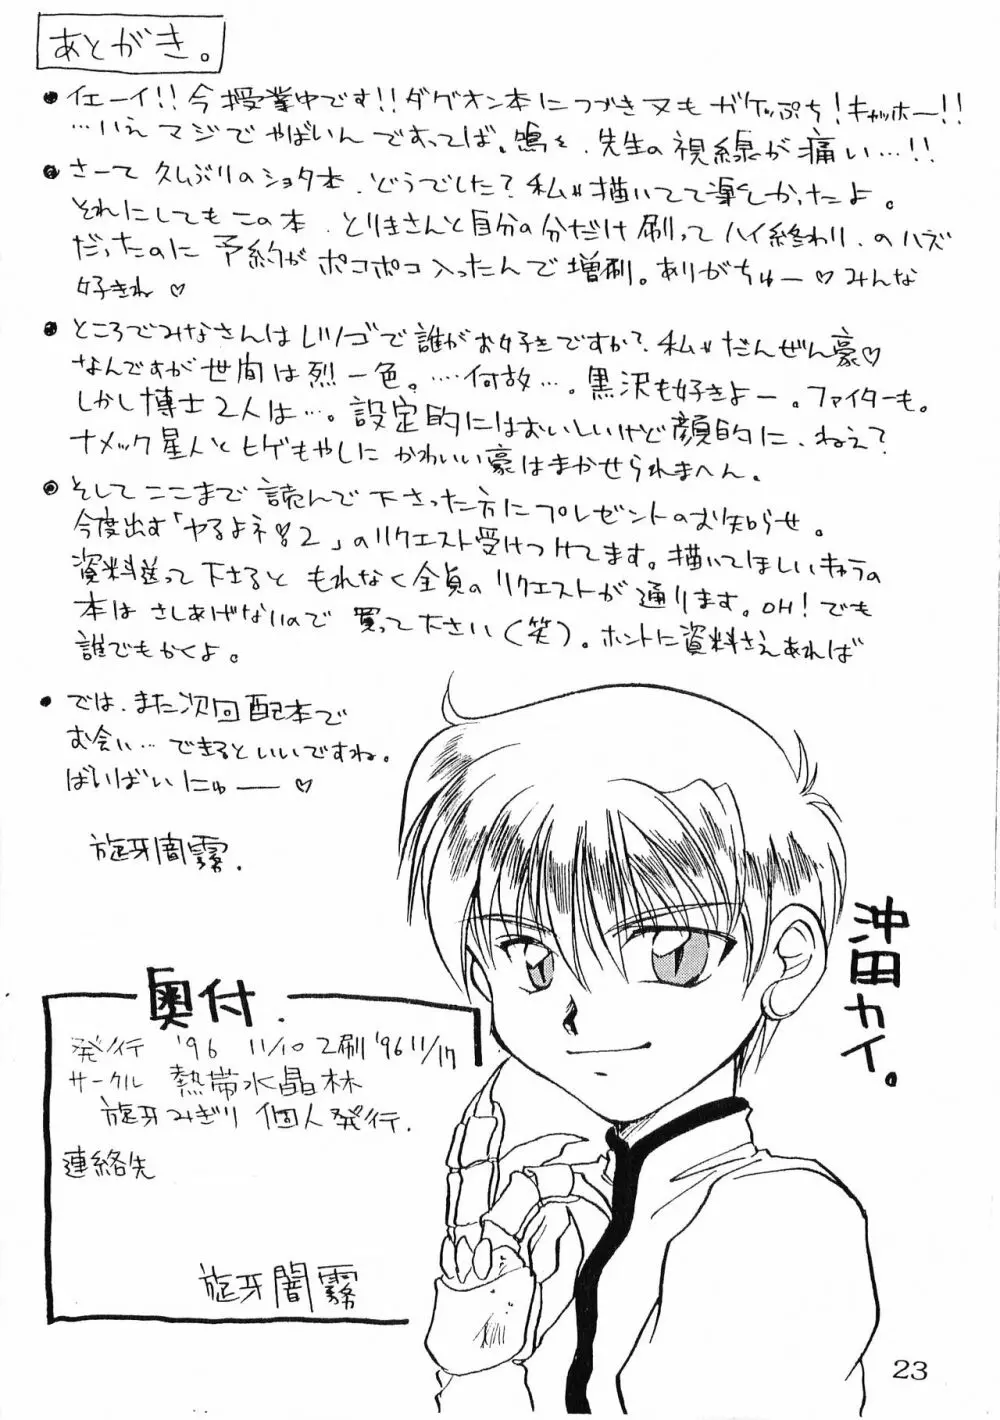 あとがき。
・イェーイ!!今授業中です!!ダグオン本につづき又もガケっぷち!キャッホー!!
…いえマジでやばいんですってば。鳴々、先生の視線が痛い…!!
・さーて久しぶりのショタ本、どうでした?私は描いてて楽しかったよ。
それにしてもこの本、とりまさんと自分の分だけ刷ってハイ終わり、のハズ
だったのに予約がポコポコ入ったんで増刷。ありがちゅー♡みんな
好きね♡
・ところでみなさんはレツゴで誰がお好きですか?私はだんぜん豪♡
なんですが世間は烈一色。…何故…。黒沢も好きよー。ファイターも。
しかし博士2人は…。設定的にはおいしいけど顔的に、ねえ?
ナメック星人とヒゲもやしにかわいい豪はまかせられまへん。
・そしてここまで読んで下さった方にプレゼントのお知らせ。
今度出す「ヤるよネ 2」のリクエスト受けつけてます。描いてほしいキャラの
資料送って下さるともれなく全員のリクエストが通ります。OH!でも
本はさしあげないので買って下さい(笑)。ホントに資料さえあれば
誰でもかくよ。
・では、また次回配本で
お会い…できるといいですね。
ばいばいにゅー♡
旋牙闇霧.
沖田カイ。
奥付.
発行 '96 11/10 2刷 '96 11/17
サークル 熱帯水晶林
旋牙みぎり 個人発行.
連絡先
旋牙闇霧
23